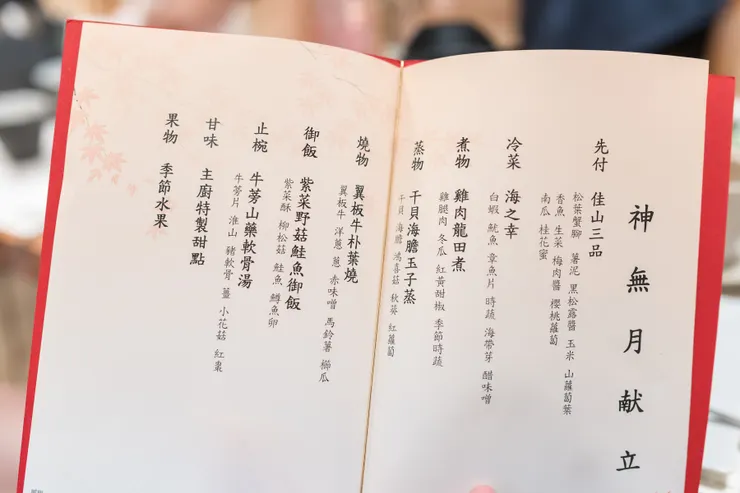 神無月献立
先付 佳山三品
松葉蟹腳 薯泥 黑松露醬 玉米 山蘿蔔葉
香魚 生菜 梅肉醬 櫻桃蘿蔔
南瓜 桂花蜜
冷菜 海之幸
白蝦 魷魚 章魚片 時蔬 海帶芽 醋味噌
煮物 雞肉龍田煮
雞腿肉 冬瓜 紅黃甜椒 季節時蔬
蒸物 干貝海膽玉子蒸
干貝 海膽 鴻喜菇 秋葵 紅蘿蔔
燒物 翼板牛朴葉燒
翼板牛 洋蔥 蔥 赤味噌 馬鈴薯 櫛瓜
御飯 紫菜野菇鮭魚御飯
紫菜酥 柳松菇 鮭魚 鱒魚卵
止椀 牛蒡山藥軟骨湯
牛蒡片 淮山 豬軟骨 薑 小花菇 紅棗
甘味 主廚特製甜點
果物 季節水果